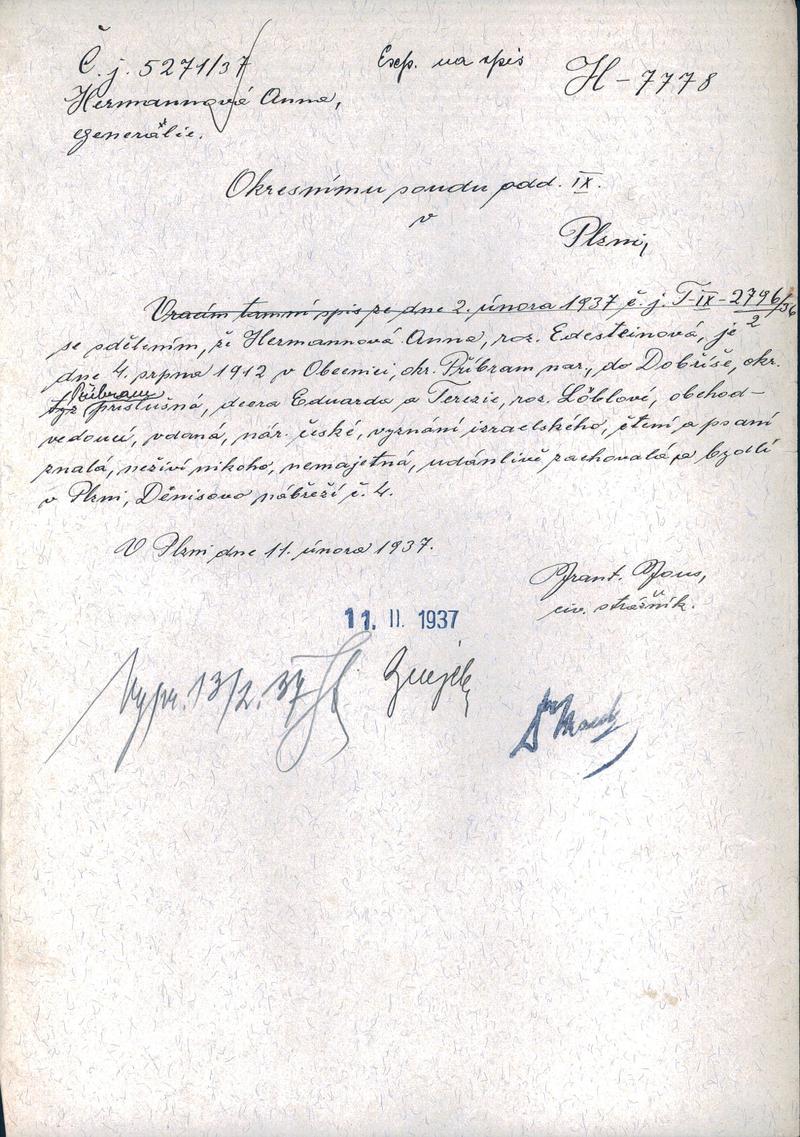 Č. j. 5271/37
Exp. na spis
H-7778
Hermannová Anna,
generálie.
Okresnímu soudu odd. IX.
v
Plzni,
Vracím tamní spis ze dne 2. února 1937 č. j. T-IX-2796/36
2
se sdělením, že Hermannová Anna, roz. Edesteinová, je
dne 4. srpna 1912 v Obecnici, okr. Příbram nar., do Dobříše, okr.
Příbram
týž příslušná, dcera Eduarda a Terezie, roz. Löblové, obchod-
vedoucí, vdaná, nár. české, vyznání izraelského, čtení a psaní
znalá, neživí nikoho, nemajetná, udánlivě zachovalá a bydlí
v Plzni, Denisovo nábřeží č. 4.
V Plzni dne 11. února 1937.
Frant. Fous,
civ. strážník.
11. II. 1937
Vypr. 13/2. 37